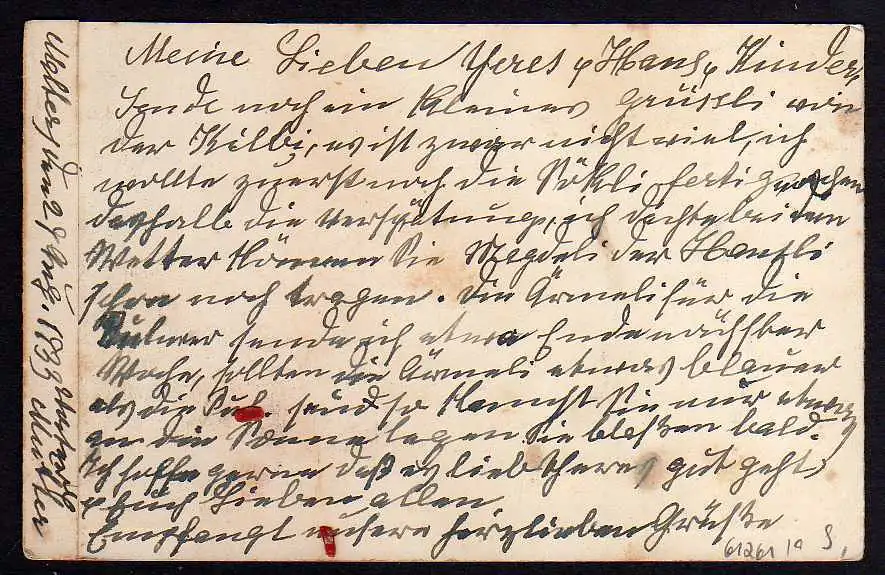 Meine Lieben Theres & Hans & Kinder,
Sende noch ein kleines Grüssli von
der Kilbi, es ist zwar nicht viel, ich
wollte zuerst noch die Sökli fertig machen
deshalb die Verspätung, ich dachte bei dem
Wetter können Sie Megdeli der Hansli
schon noch tragen. Die Ärmeli für die
sende ich etwa Ende nächster
Woche, sollten die Ärmeli etwas blauer
als die sind so kannst sie nur etwas
an die Sonne legen sie bleßen bald.
Ich hoffe gerne daß es lieb Theres gut geht,
& Euch Lieben allen
Empfangt unsere herzlieben Grüße
den 29 Aug. 1933 Mutter
61261 19